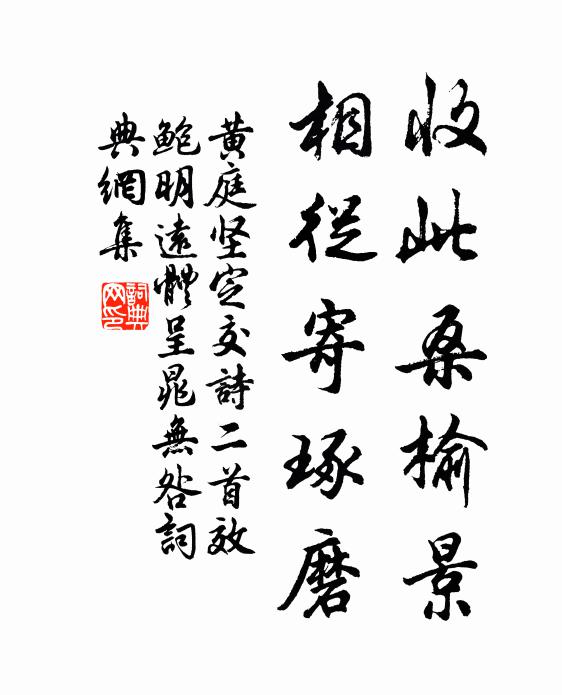 收此桑榆景
相從寄琢磨
黄庭坚定交詩二首效
鮑明遠體呈晁無咎詞
典網集
詞典
网印